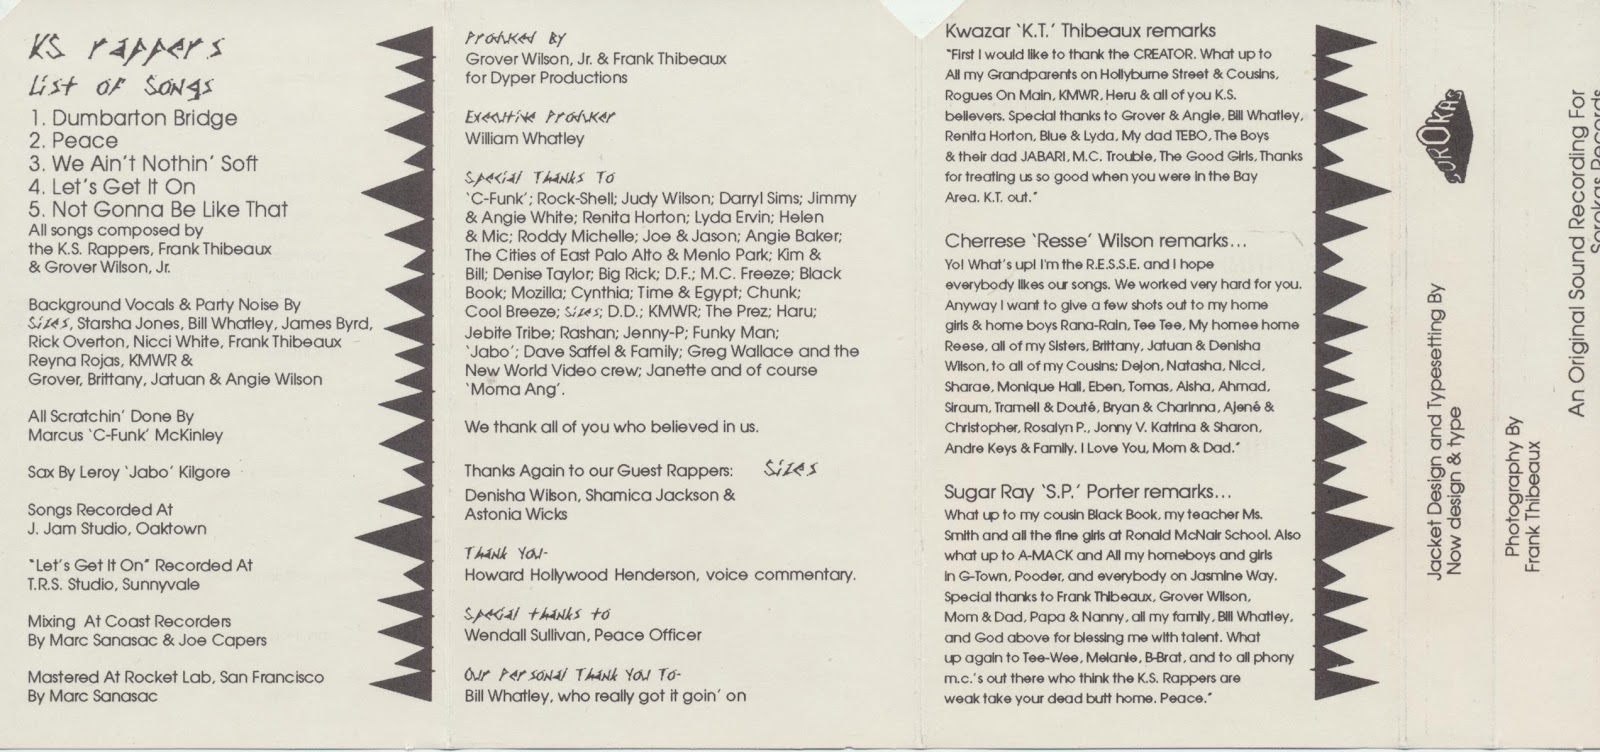 KS rappers
List of Songs
1. Dumbarton Bridge
2. Peace
3. We Ain't Nothin' Soft
4. Let's Get It On
5. Not Gonna Be Like That
All songs composed by
the K.S. Rappers, Frank Thibeaux
& Grover Wilson, Jr.
Background Vocals & Party Noise By
Sizes, Starsha Jones, Bill Whatley, James Byrd,
Rick Overton, Nicci White, Frank Thibeaux
Reyna Rojas, KMWR &
Grover, Brittany, Jatuan & Angie Wilson
All Scratchin' Done By
Marcus 'C-Funk' McKinley
Sax By Leroy 'Jabo' Kilgore
Songs Recorded At
J. Jam Studio, Oaktown
"Let's Get It On" Recorded At
T.R.S. Studio, Sunnyvale
Mixing At Coast Recorders
By Marc Sanasac & Joe Capers
Mastered At Rocket Lab, San Francisco
By Marc Sanasac
Produced By
Grover Wilson, Jr. & Frank Thibeaux
for Dyper Productions
Executive Producer
William Whatley
Special Thanks To
'C-Funk'; Rock-Shell; Judy Wilson; Darryl Sims; Jimmy
& Angie White; Renita Horton; Lyda Ervin; Helen
& Mic; Roddy Michelle; Joe & Jason; Angie Baker;
The Cities of East Palo Alto & Menlo Park; Kim &
Bill; Denise Taylor; Big Rick; D.F.; M.C. Freeze; Black
Book; Mozilla; Cynthia; Time & Egypt; Chunk;
Cool Breeze; Sizes; D.D.; KMWR; The Prez; Haru;
Jebite Tribe; Rashan; Jenny-P; Funky Man;
'Jabo'; Dave Saffel & Family; Greg Wallace and the
New World Video crew; Janette and of course
'Moma Ang'.
We thank all of you who believed in us.
Thanks Again to our Guest Rappers: Sizes
Denisha Wilson, Shamica Jackson &
Astonia Wicks
Thank You-
Howard Hollywood Henderson, voice commentary.
Special thanks to
Wendall Sullivan, Peace Officer
Our Personal Thank You To-
Bill Whatley, who really got it goin' on
Kwazar 'K.T.' Thibeaux remarks
"First I would like to thank the CREATOR. What up to
All my Grandparents on Hollyburne Street & Cousins,
Rogues On Main, KMWR, Heru & all of you K.S.
believers. Special thanks to Grover & Angie, Bill Whatley,
Renita Horton, Blue & Lyda, My dad TEBO, The Boys
& their dad JABARI, M.C. Trouble, The Good Girls, Thanks
for treating us so good when you were in the Bay
Area. K.T. out."
Cherrese 'Resse' Wilson remarks...
Yo! What's up! I'm the R.E.S.S.E. and I hope
everybody likes our songs. We worked very hard for you.
Anyway I want to give a few shots out to my home
girls & home boys Rana-Rain, Tee Tee, My homee home
Reese, all of my Sisters, Brittany, Jatuan & Denisha
Wilson, to all of my Cousins; Dejon, Natasha, Nicci,
Sharae, Monique Hall, Eben, Tomas, Aisha, Ahmad,
Siraum, Tramell & Douté, Bryan & Charinna, Ajené &
Christopher, Rosalyn P., Jonny V. Katrina & Sharon,
Andre Keys & Family. I Love You, Mom & Dad."
Sugar Ray 'S.P.' Porter remarks...
What up to my cousin Black Book, my teacher Ms.
Smith and all the fine girls at Ronald McNair School. Also
what up to A-MACK and All my homeboys and girls
in G-Town, Pooder, and everybody on Jasmine Way.
Special thanks to Frank Thibeaux, Grover Wilson,
Mom & Dad, Papa & Nanny, all my family, Bill Whatley,
and God above for blessing me with talent. What
up again to Tee-Wee, Melanie, B-Brat, and to all phony
m.c.'s out there who think the K.S. Rappers are
weak take your dead butt home. Peace."
Jacket Design and Typesetting By
Now design & type
Photography By
Frank Thibeaux
An Original Sound Recording For